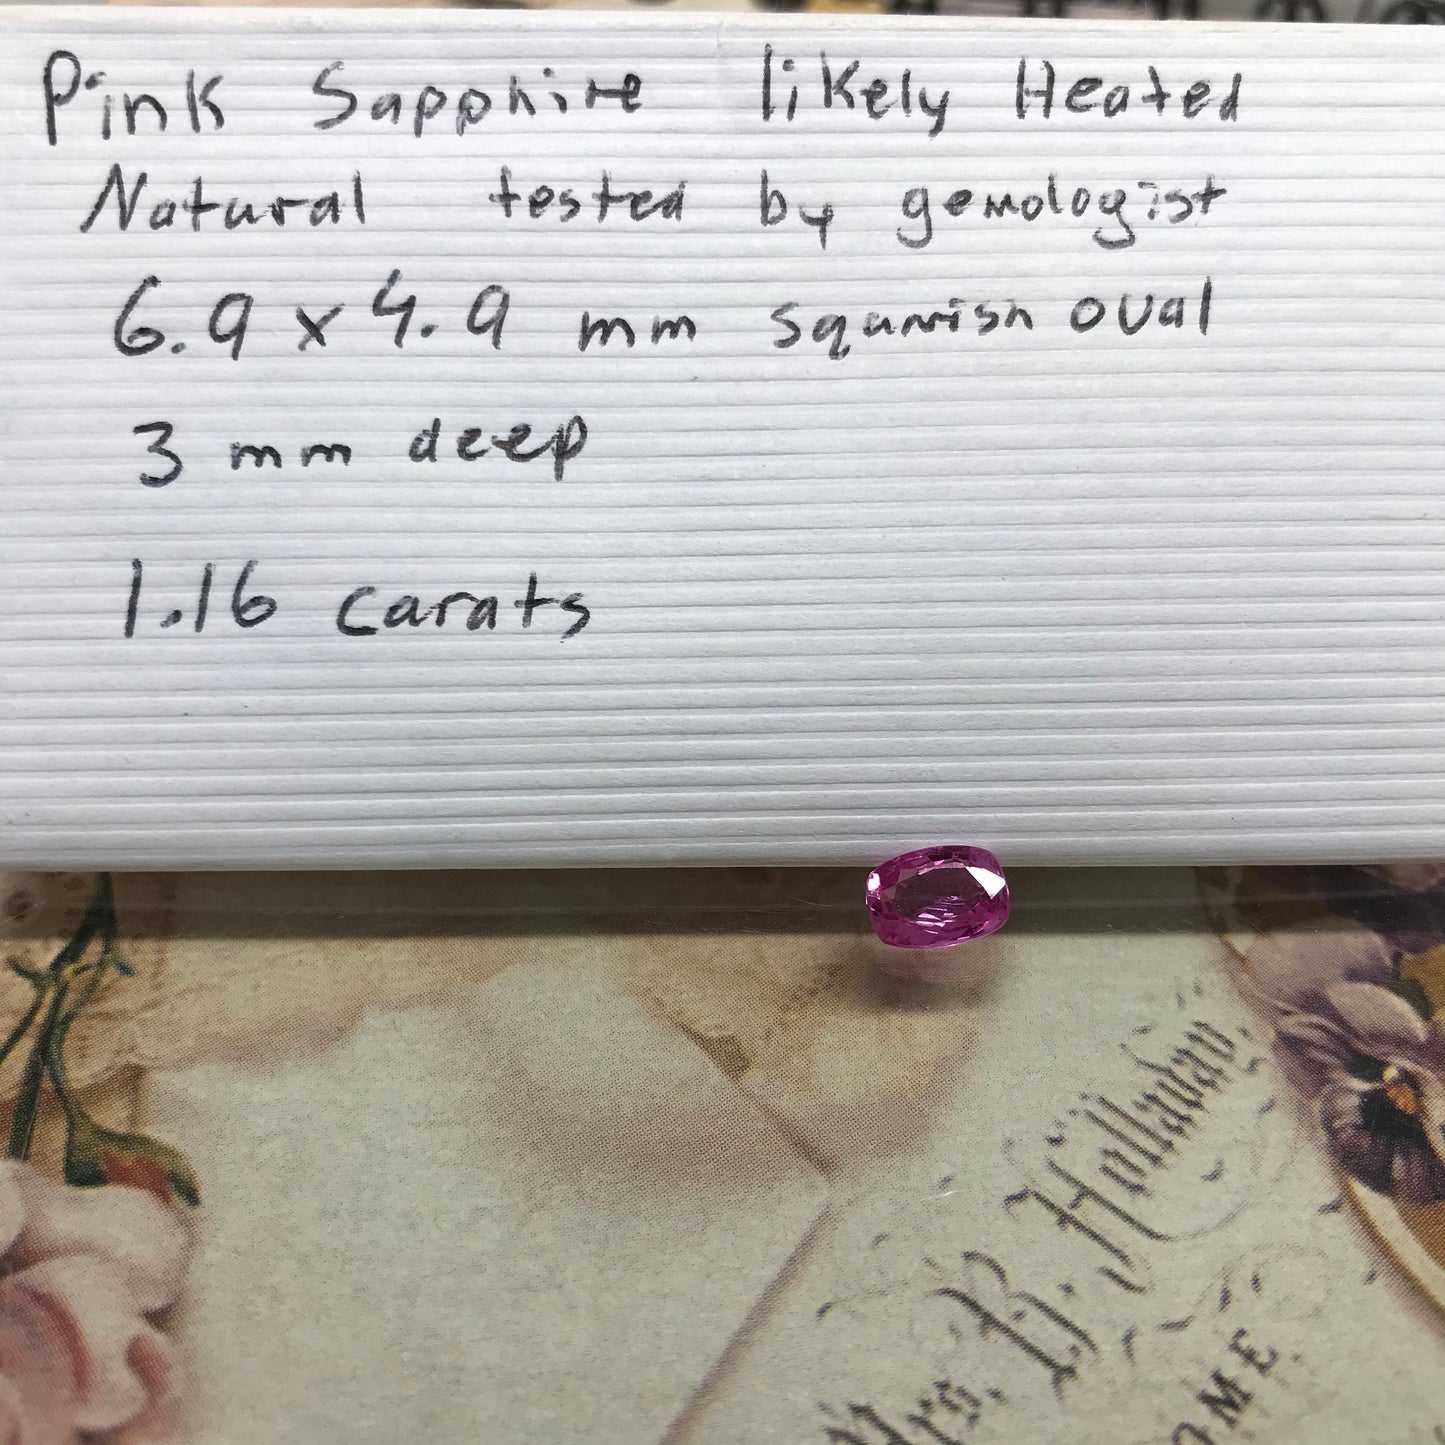 Pink Sapphire likely Heated
Natural tested by gemologist
6.9 x 4.9 mm squarish oval
3 mm deep
1.16 carats
Mrs. B. Holladay
OME